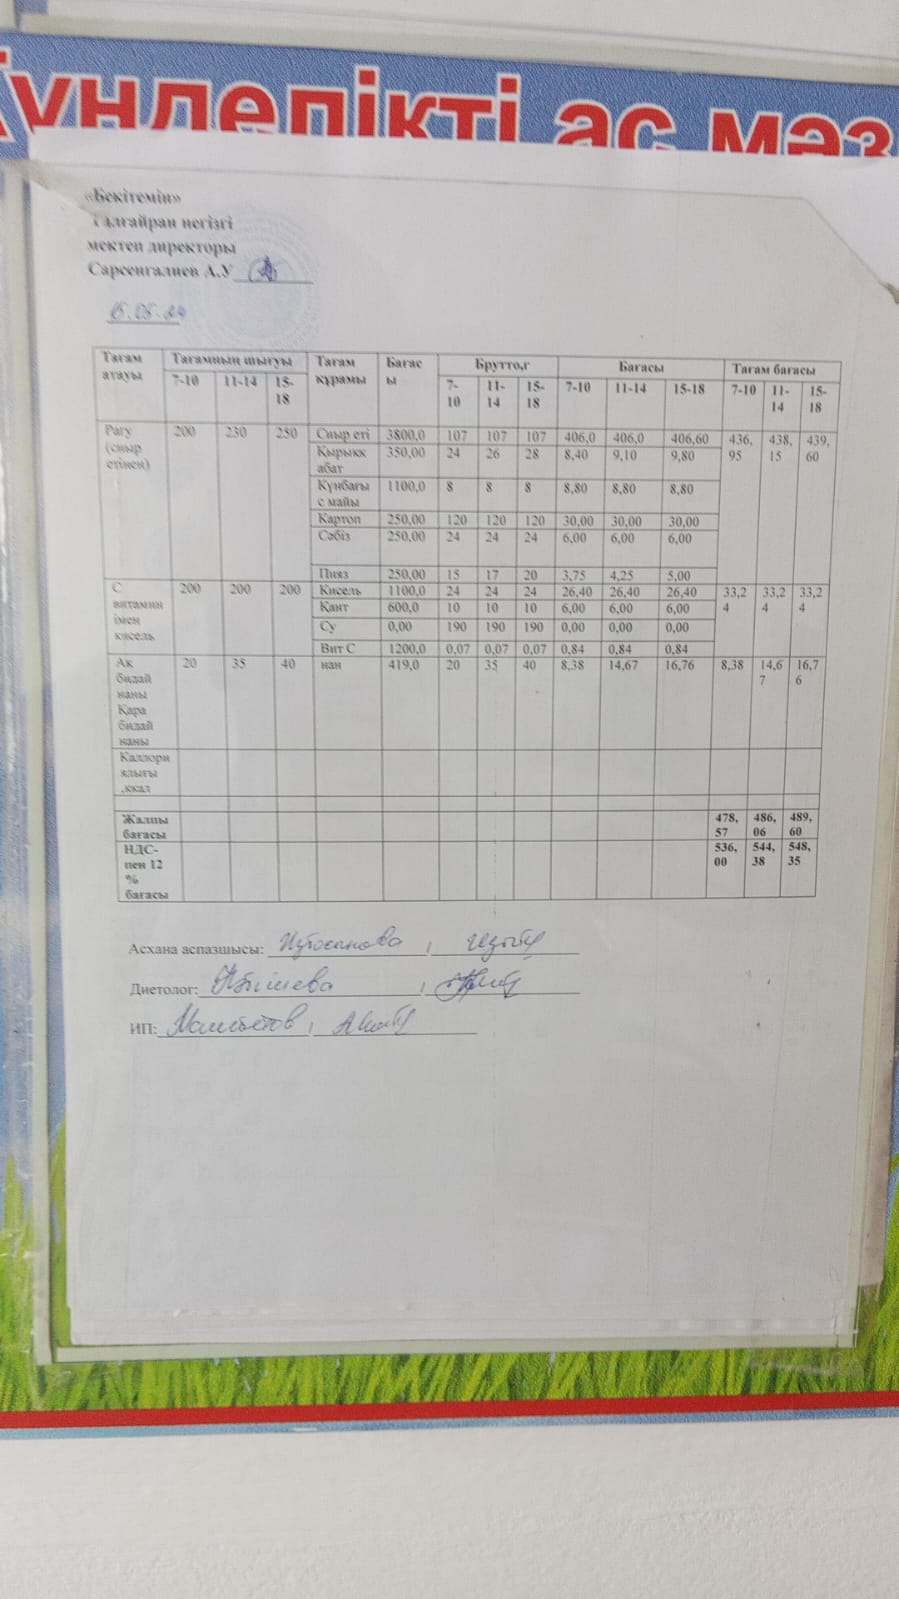 Күнделікті ас мәз
«Бекітемін»
Талғайран негізгі
мектеп директоры
Сарсенгалиев А.У
15.05.24
Тағам атауы Тағамның шығуы Тағам құрамы Бағасы Брутто,г Бағасы Тағам бағасы
7-10 11-14 15-18 7-10 11-14 15-18 7-10 11-14 15-18 7-10 11-14 15-18
Рагу (сиыр етінен) 200 230 250 Сиыр еті 3800,0 107 107 107 406,0 406,0 406,60 436,95 438,15 439,60
Кырыккабат 350,00 24 26 28 8,40 9,10 9,80
Күнбағыс майы 1100,0 8 8 8 8,80 8,80 8,80
Картоп 250,00 120 120 120 30,00 30,00 30,00
Сәбіз 250,00 24 24 24 6,00 6,00 6,00
Пияз 250,00 15 17 20 3,75 4,25 5,00
С витаминімен кисель 200 200 200 Кисель 1100,0 24 24 24 26,40 26,40 26,40 33,24 33,24 33,24
Қант 600,0 10 10 10 6,00 6,00 6,00
Су 0,00 190 190 190 0,00 0,00 0,00
Вит С 1200,0 0,07 0,07 0,07 0,84 0,84 0,84
Ак бидай наны Қара бидай наны 20 35 40 нан 419,0 20 35 40 8,38 14,67 16,76 8,38 14,67 16,76
Каллориялығы ,ккал
Жалпы бағасы 478,57 486,06 489,60
НДС-пен 12 % бағасы 536,00 544,38 548,35
Асхана аспазшысы:
Диетолог:
ИП: